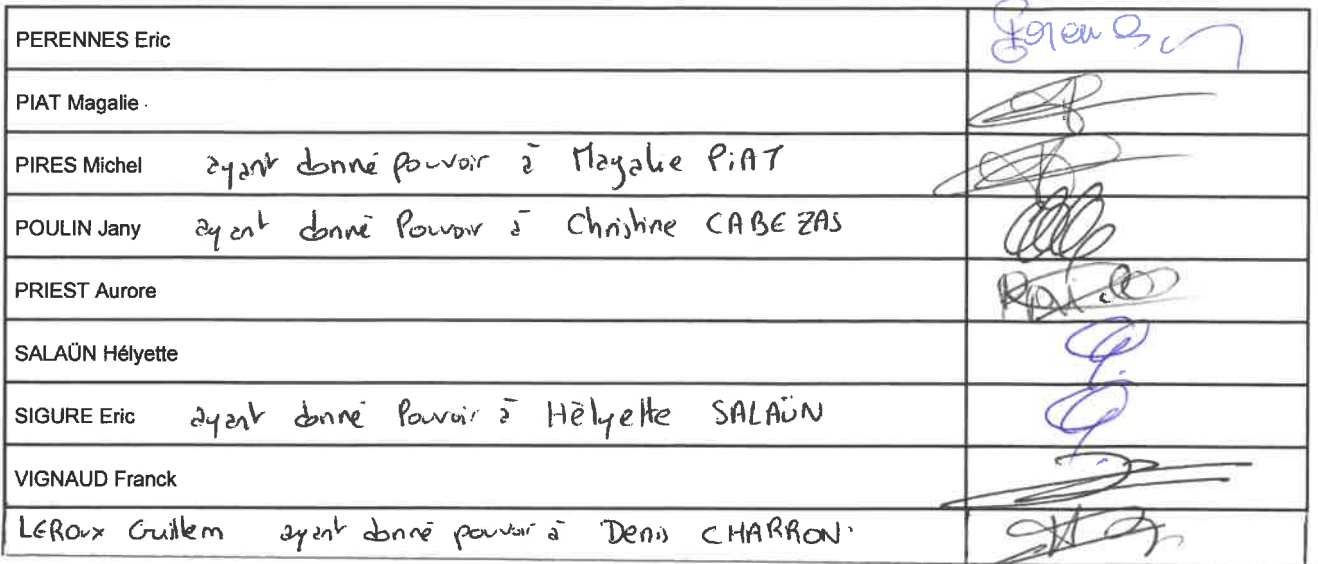 PERENNES Eric
PIAT Magalie
PIRES Michel ayant donné pouvoir à Magalie PIAT
POULIN Jany ayant donné Pouvoir à Christine CABEZAS
PRIEST Aurore
SALAÜN Hélyette
SIGURE Eric ayant donné Pouvoir à Hélyette SALAÜN
VIGNAUD Franck
LEROUX Guillem ayant donné pouvoir à Denis CHARRON